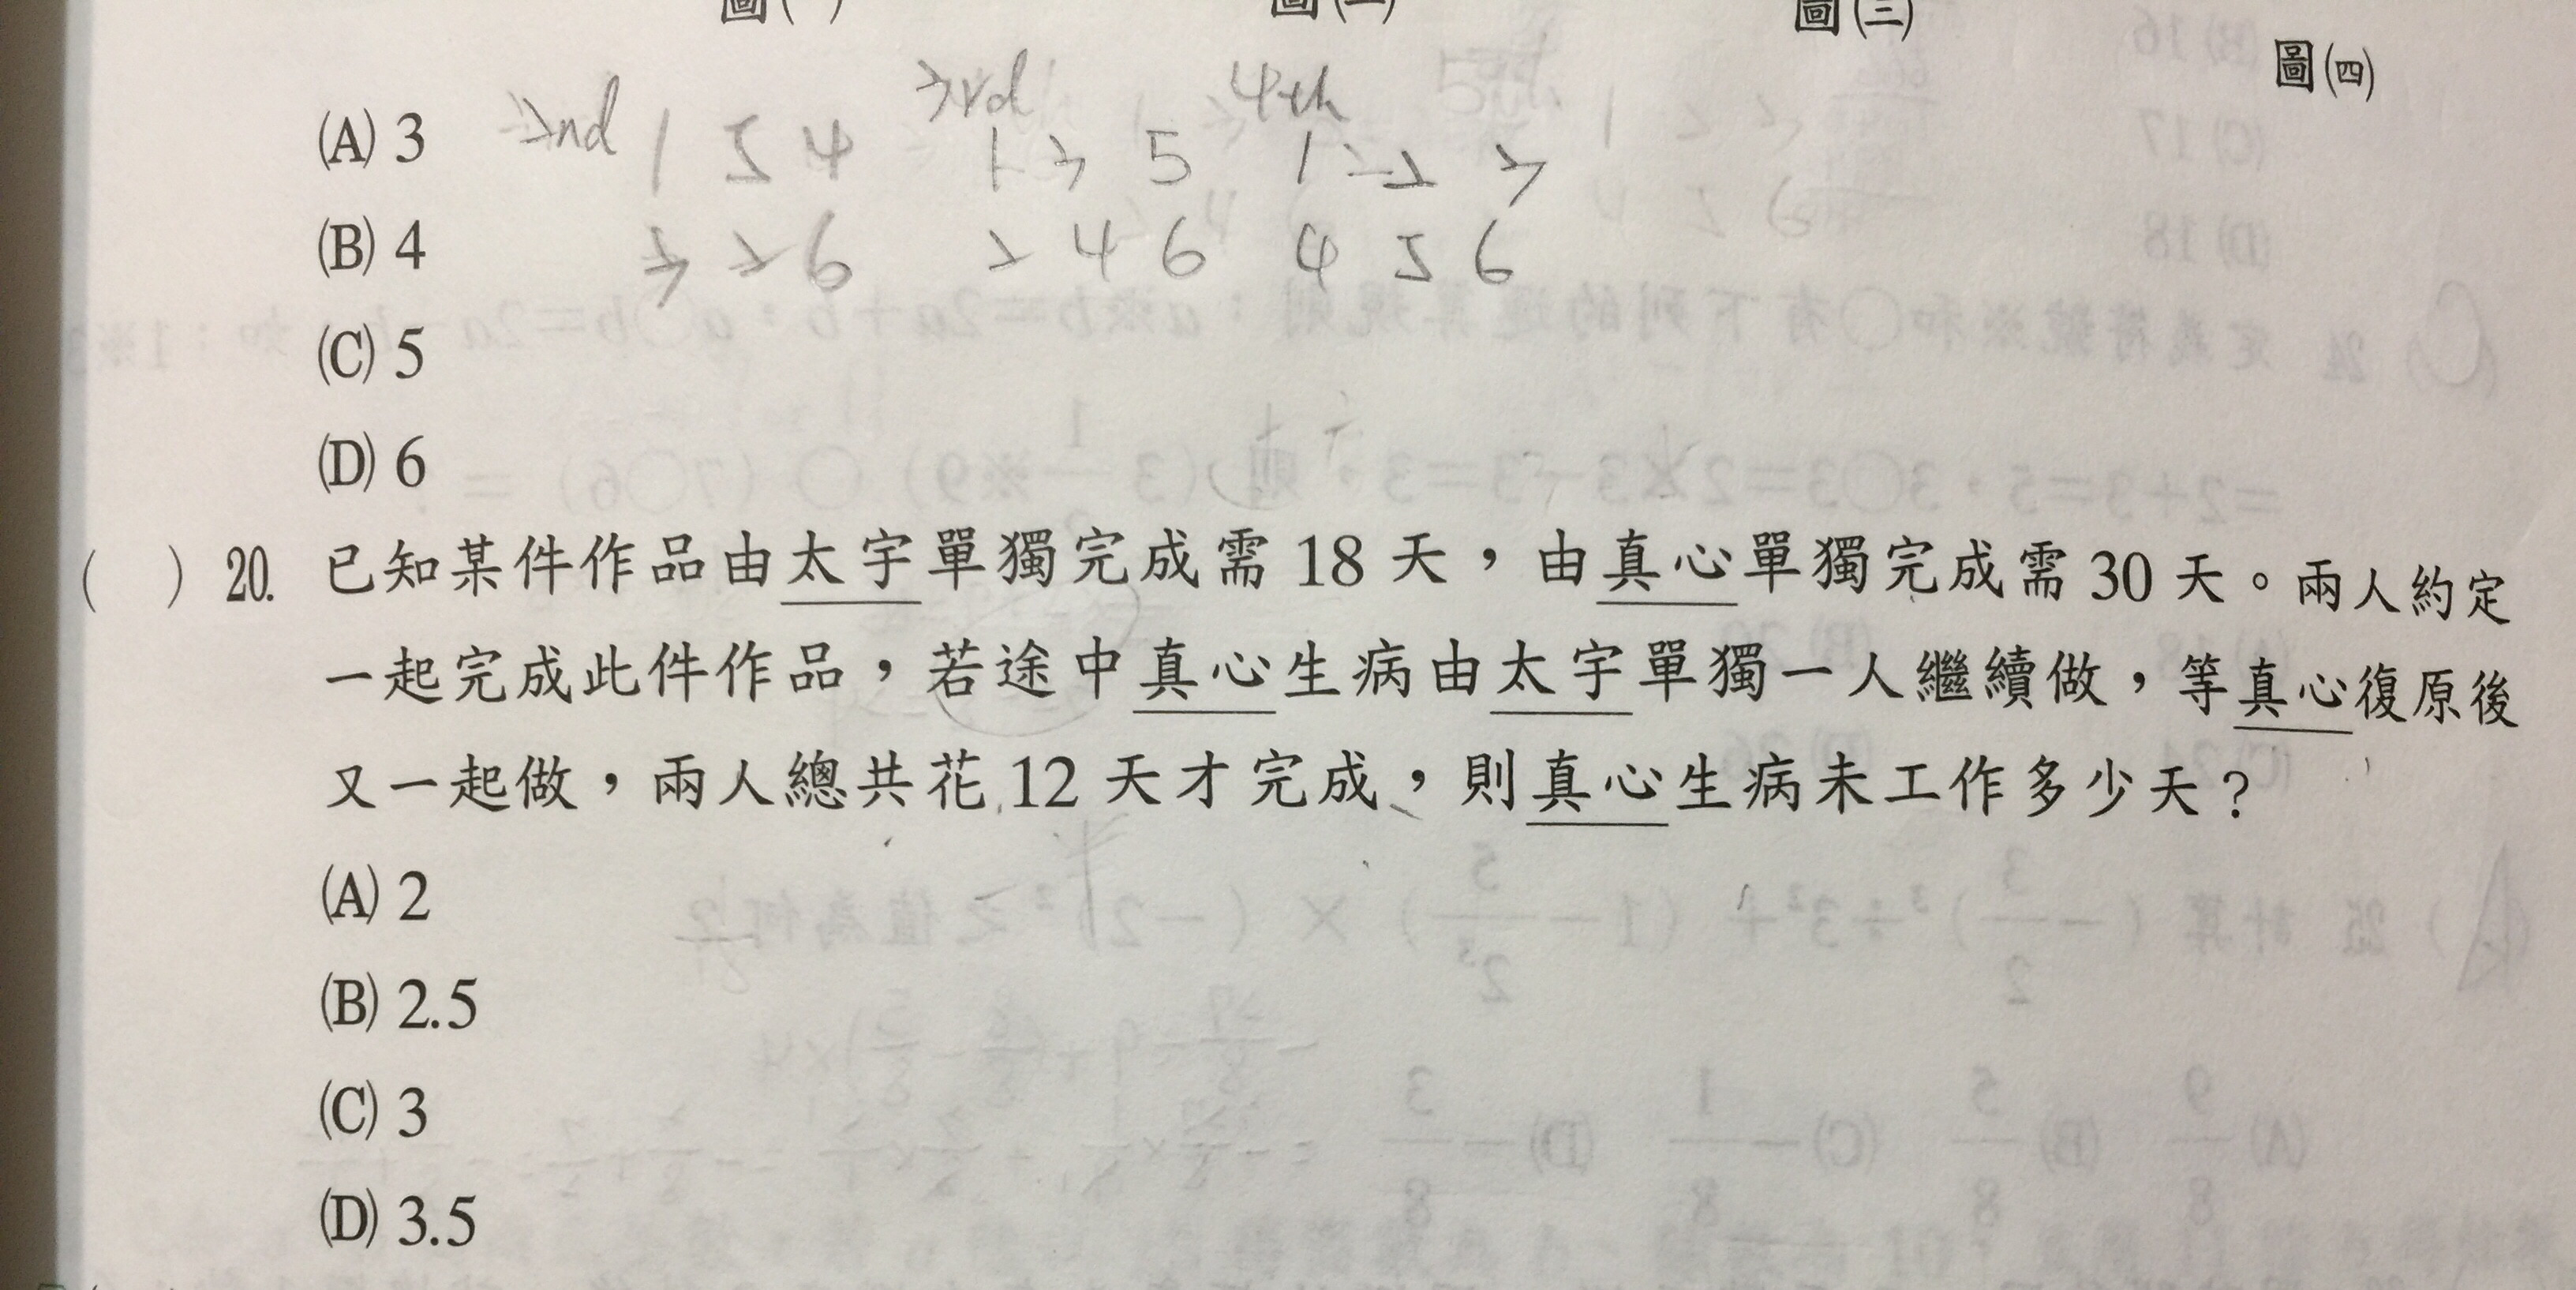 圖(三)
圖(四)
2nd 3rd 4th
(A) 3 1 5 4 1 3 5 1 2 3
(B) 4 3 2 6 2 4 6 4 5 6
(C) 5
(D) 6
( ) 20. 已知某件作品由太宇單獨完成需 18 天，由真心單獨完成需 30 天。兩人約定
一起完成此件作品，若途中真心生病由太宇單獨一人繼續做，等真心復原後
又一起做，兩人總共花 12 天才完成，則真心生病未工作多少天？
(A) 2
(B) 2.5
(C) 3
(D) 3.5